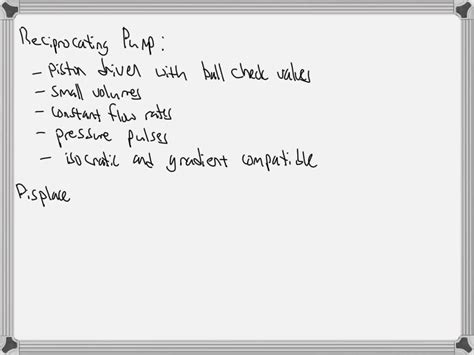 Reciprocating Pump:
- piston driven with ball check valves
- small volumes
- constant flow rates
- pressure pulses
- isocratic and gradient compatible
Displace